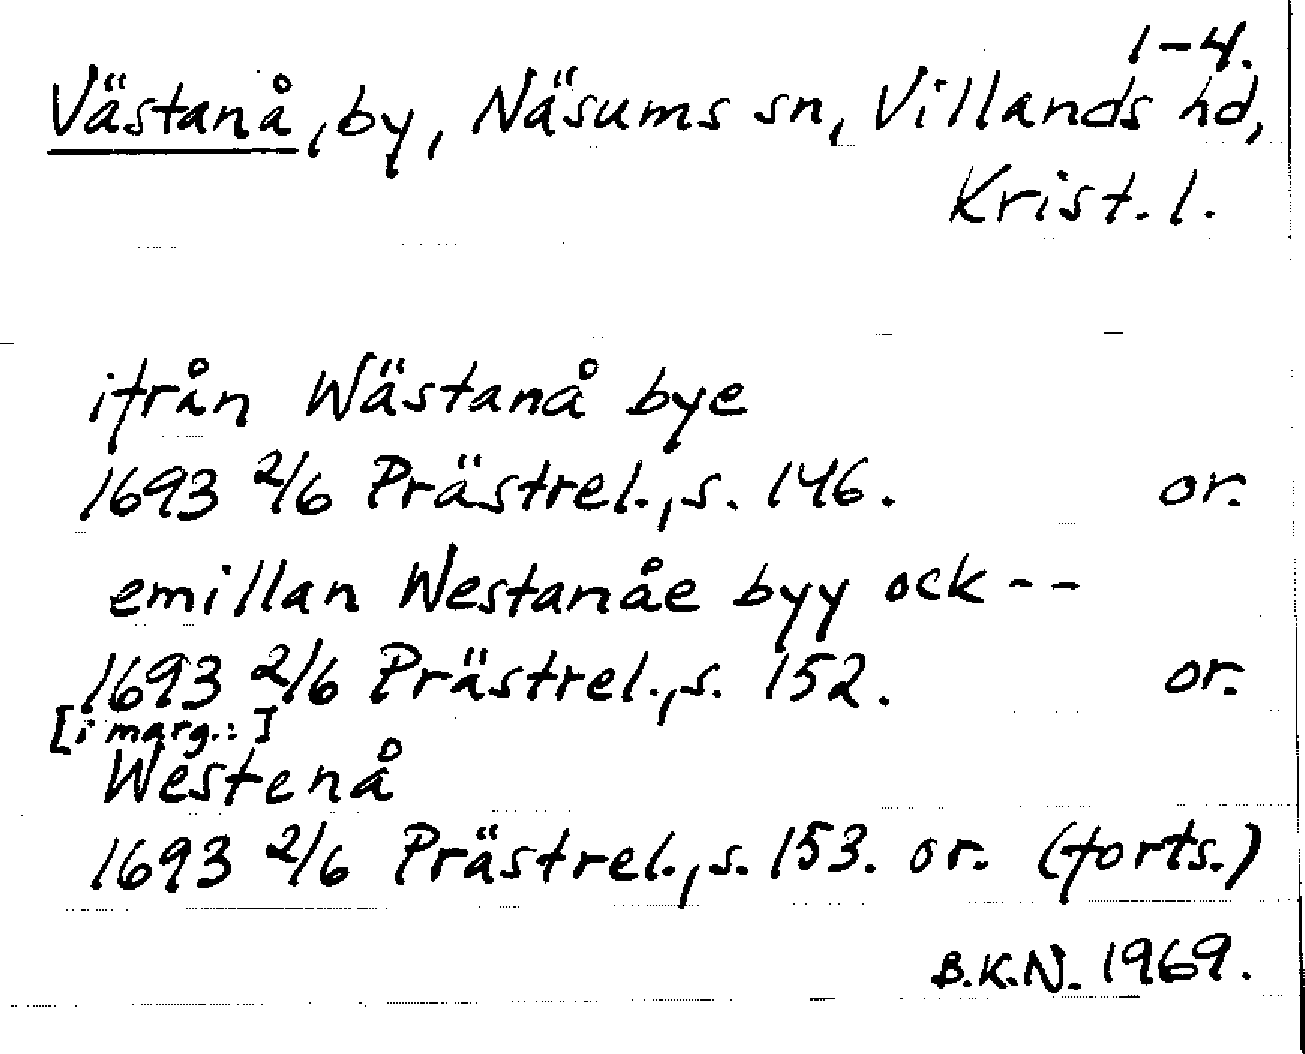 1-4.
Västanå, by, Näsums sn, Villands hd,
Krist. l.
ifrån Wästanå bye
1693 2/6 Prästrel., s. 146. or.
emillan Westanåe byy ock --
1693 2/6 Prästrel., s. 152. or.
[i marg.:]
Westenå
1693 2/6 Prästrel., s. 153. or. (forts.)
B.K.N. 1969.